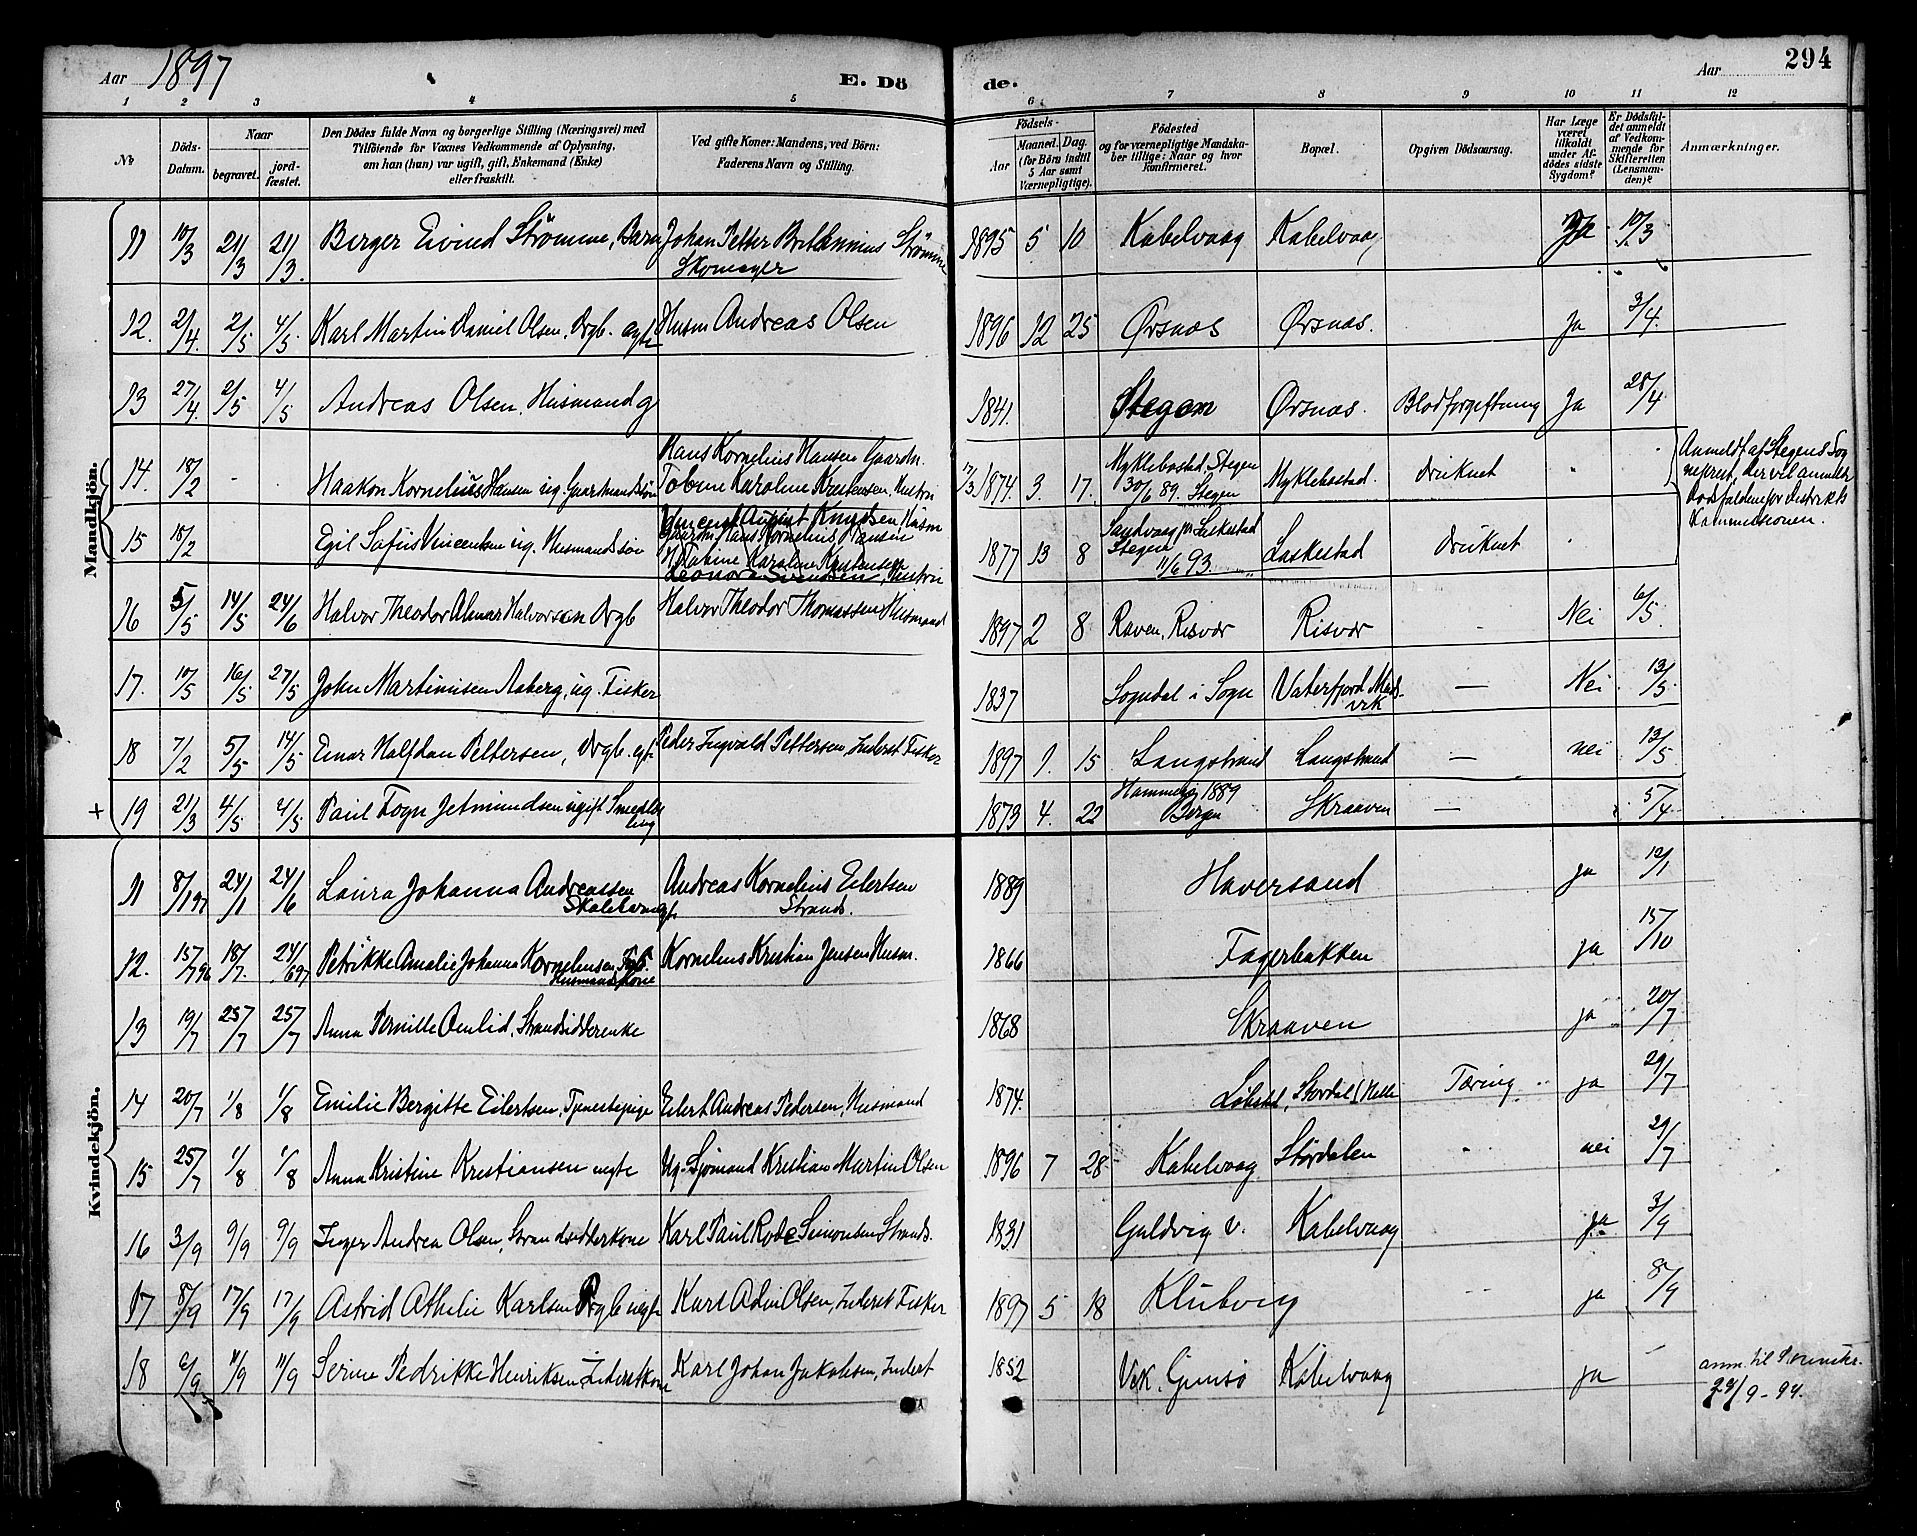 Aar 1897 E. Dö de. Aar 294
1 2 3 4 5 6 7 8 9 10 11 12
No
Döds-Datum.
Naar
begravet.
jord-fæstet.
Den Dödes fulde Navn og borgerlige Stilling (Næringsvei) med
Tilföiende for Voxnes Vedkommende af Oplysning,
om han (han) var ugift, gift, Enkemand (Enke)
eller fraskilt.
Ved gifte Koner: Mandens, ved Börn:
Faderens Navn og Stilling.
Födsels-
Aar
Maaned. Dag.
(for Börn indtil
5 Aar samt
Værnepligtige).
Födested
og for værnepligtige Mandska-
ber tillige: Naar og hvor
konfirmeret.
Bopæl.
Opgiven Dödsaarsag.
Har Læge
været
tilkaldt
under Af-
dödes sidste
Sygdom?
Er Dödsfal-
det anmeldt
af Vedkom-
mende for
Skifteretten
(Lensman-
den)?
Anmærkninger.
Mandkjön.
11 10/3 21/3 21/3. Birger Eivind Strömme, Barn Johan Petter Strömme 1895 5 10 Kabelvaag Kabelvaag Ja 10/3
Skomager
12. 2/4. 2/5 4/5. Karl Martin Daniel Olsen. Drgb. ægte Husm Andreas Olsen 1896 12 25 Ørsnæs Ørsnæs. Ja 3/4.
13 27/4. 2/5 4/5 Andreas Olsen. Husmand g 1841. Stegen Ørsnæs. Blodforgiftning Ja 28/4
14. 18/2 - - Haakon Kornelius Hansen ug. Gaardmandssön Hans Kornelius Hansen Gaardm. 1874. 3. 17. Myklebostad. Stegen Myklebostad. druknet
Tobine Karoline Kristensen, Hustru 30/6 89. Stegen
Anmeldt af Stegens Sog
nepræst, der vil anmelde
Dödsfaldene for Distrikts
Kommissionen.
15 18/2 Egil Vincentsen ug. Husmandssön Vincent August Knudsen, Husm 1877 13 8 Laskestad Laskestad druknet
Gaardm. Hans Kornelius Hansen Stegen 11/6 93.
Tobine Karoline Kristensen
Leonora Svendsen, Hustru
16 5/5 14/5 24/6 Halvor Theodor Halvorsen Drgb Halvor Theodor Thomassen Husmand 1897 2 8 Raven, Risvær Risvær - Nei 6/5.
17. 10/5 16/5 27/5 John Martinusen Aaberg, ug. Fisker 1837 Sogndal i Sogn Vaterfjord — Nei 13/5
18 7/2 5/5 14/5 Einar Halfdan Pettersen, Drgb. egt. Peder Ingvald Pettersen, Inderst Fisker 1897 1. 15 Langstrand Langstrand — nei 13/5
+ 19 21/3 4/5 4/5 Paul Jetmundsen ugift 1873 4. 22 1889 Bergen Skraaven — 5/4
Kvindekjön.
11 8/1 97 24/1 24/6 Laura Johanna Andreassen Andreas Kornelius Eilertsen 1889 Haversand ja 12/1
Strands.
12. 15/7 96 18/7. 24/6 97 Petrikke Amalie Johanna Kornelinsen Kornelius Kristian Jensen Husm. 1866 Fagerbakken ja 15/10
Husmandskone
13 19/7 25/7 25/7 Anna Pernille Strandsidderenke 1868 Skraaven ja 20/7
14 20/7 1/8 1/8 Emilie Bergitte Eilertsen, Tjenestepige Eilert Andreas Pedersen, Husmand 1874. Stordal Tæring ja 29/7
15 25/7 1/8 1/8 Anna Kristine Kristiansen uegte Ug. Sjömand Kristian Martin Olsen 1896 7 28 Kabelvaag Stordalen nei 29/7
16 3/9 9/9 9/9 Inger Andrea Olsen, Strandsidderkone Karl Paul Simonsen Strands. 1831 Guldvig V. Kabelvaag ja 3/9
17 8/9 17/9 17/9 Astrid Athelie Karlsen Drgb uegte Karl Olsen, Inderst Fisker 1897 5 18 Klubvig ja 8/9
18 6/9 11/9 11/9 Serine Pedrikke Henriksen Inderstkone Karl Johan Jakobsen, Inderst 1852 Gimsö Kabelvaag ja
anm. til
24/9-97.